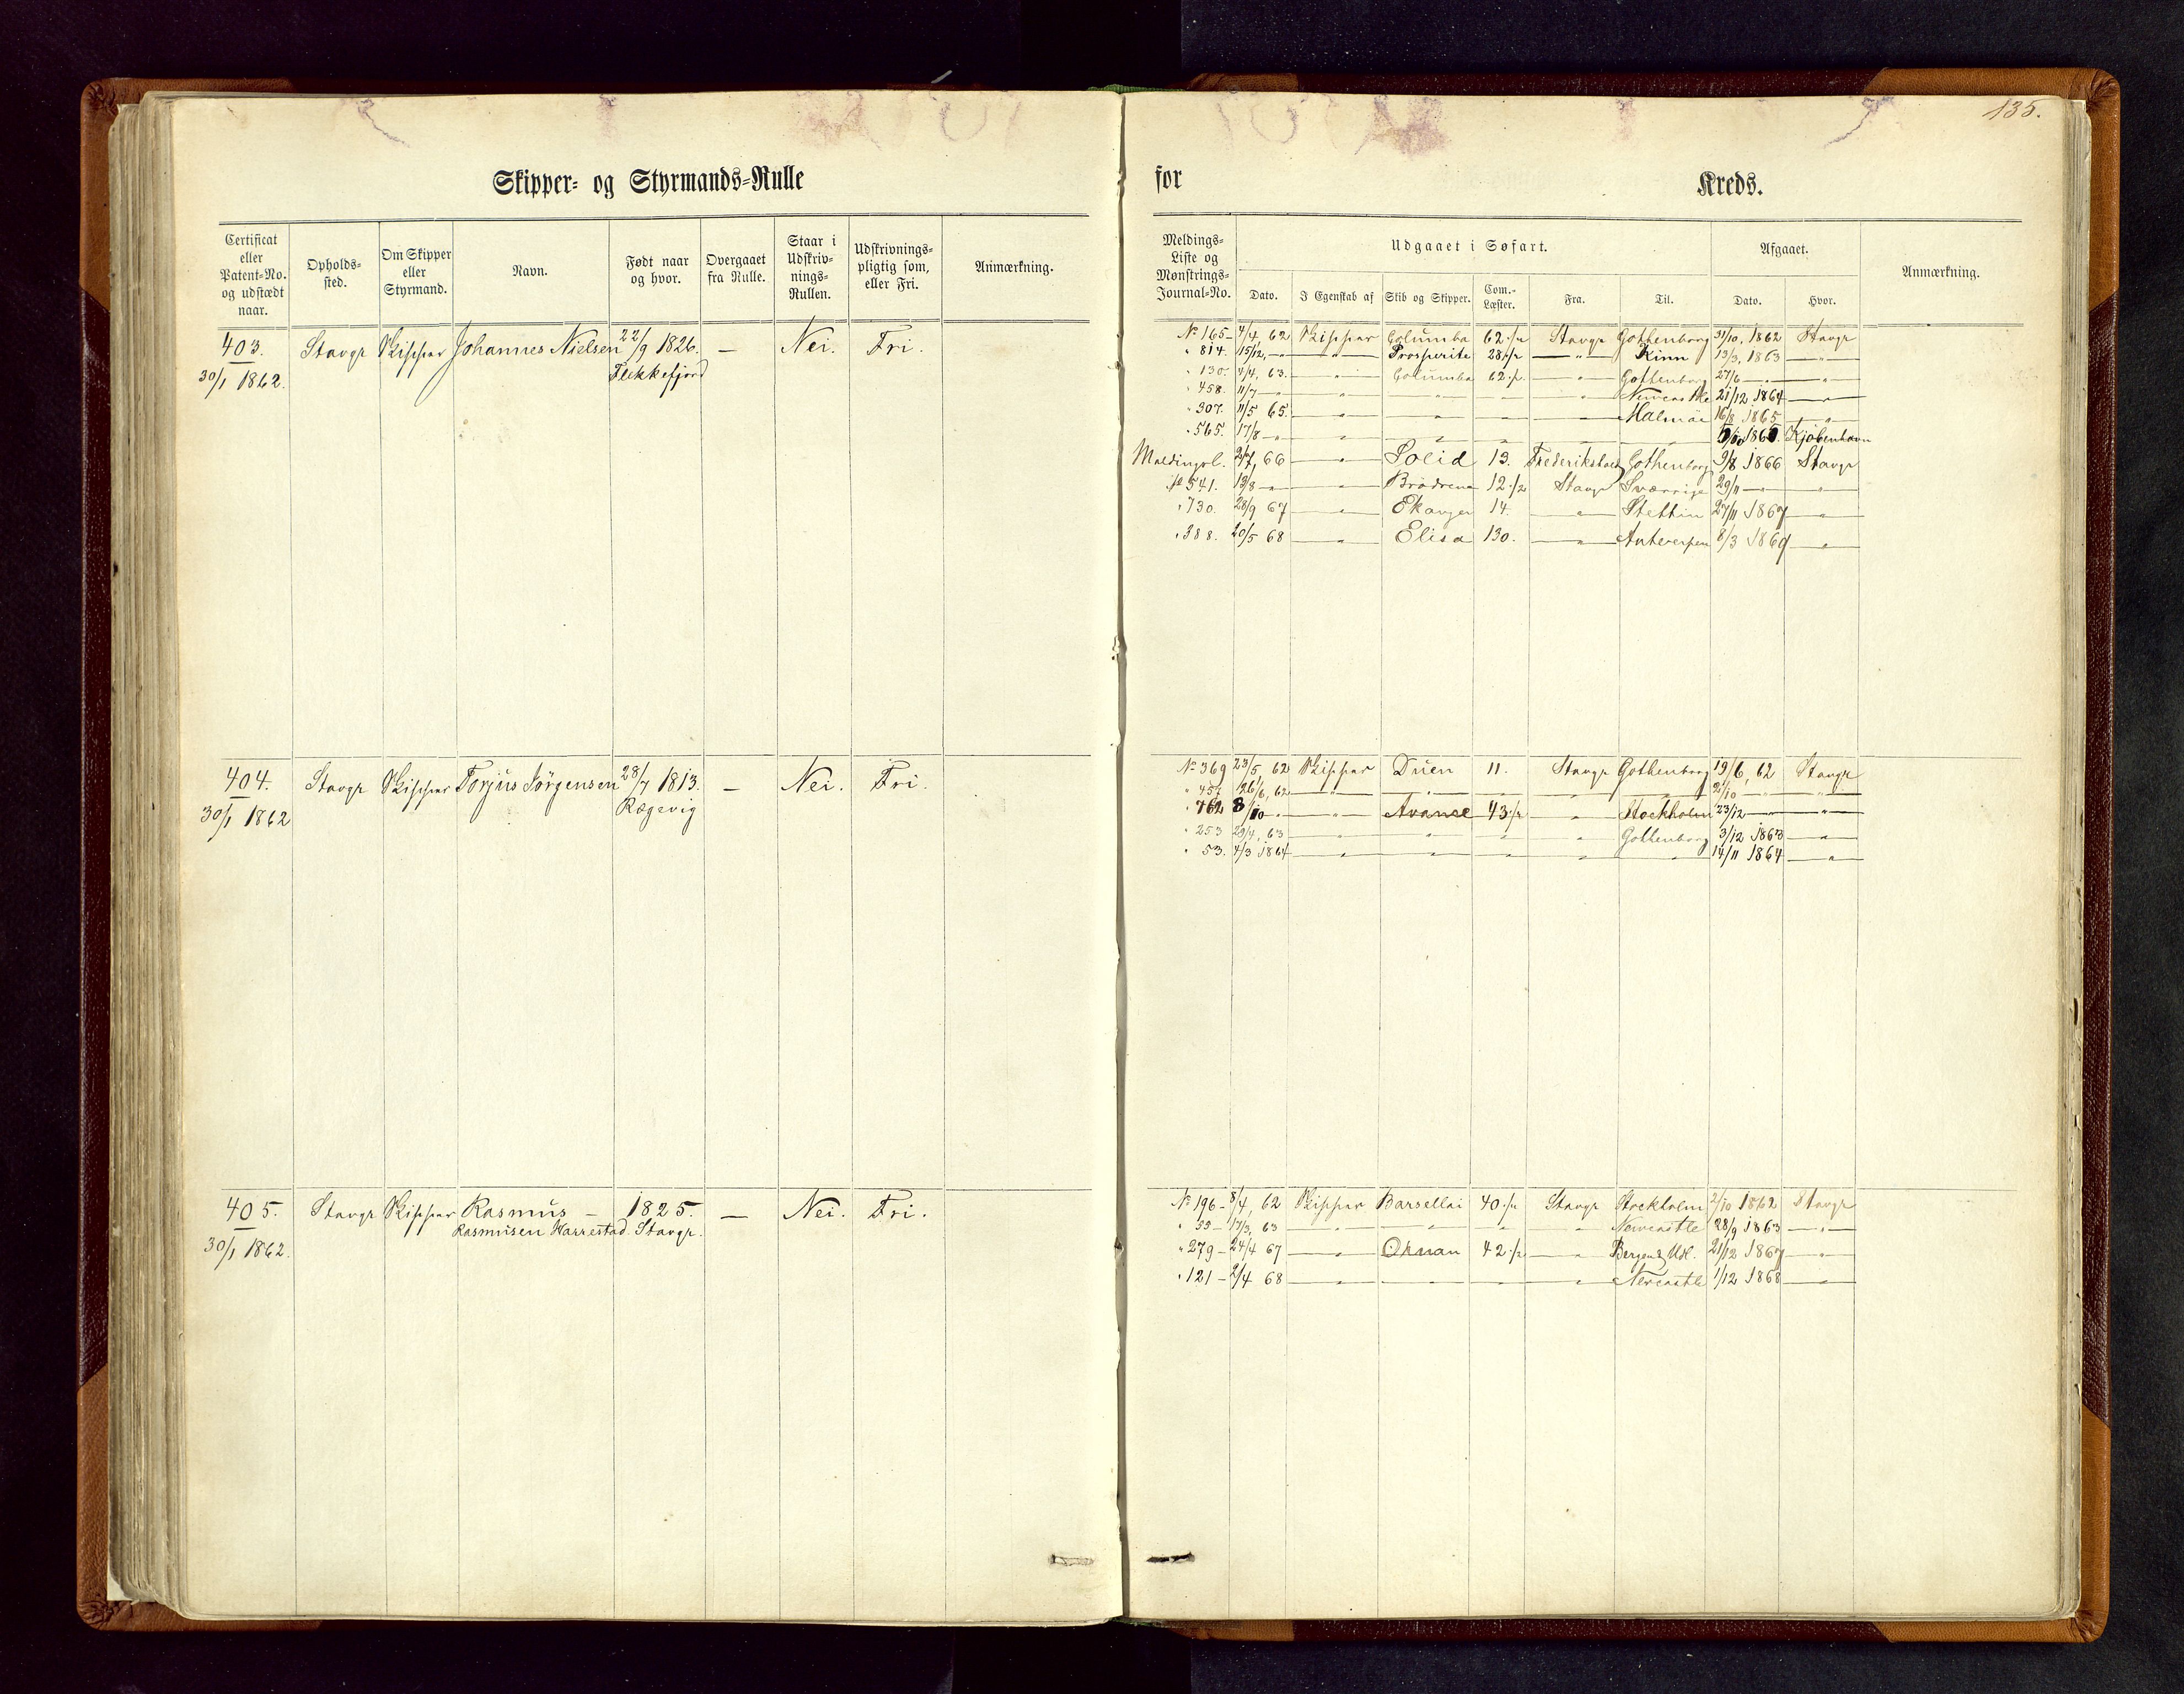 135.
Skipper- og Styrmands-Rulle for Kreds.
Certificat eller Patent-No. og udstædt naar.
Opholds-sted.
Om Skipper eller Styrmand.
Navn.
Født naar og hvor.
Overgaaet fra Rulle.
Staar i Udskriv-nings-Rullen.
Udskrivnings-pligtig som, eller Fri.
Anmærkning.
Meldings-Liste og Mønstrings-Journal-No.
Udgaaet i Søfart.
Dato.
I Egenskab af
Skib og Skipper.
Com.-Læster.
Fra.
Til.
Afgaaet.
Dato.
Hvor.
Anmærkning.
403. Stavgr Skipper Johannes Nielsen 22/9 1826. — Nei. Fri.
30/1 1862. Flekkefjord
No 165 - 4/4 62 Skipper Columba 62 1/2 Stavgr Gothenborg 31/10, 1862 Stavgr
" 814. 15/12, — " — " — Prosperite 28 1/2 — " — Kinn 13/3, 1863 — " —
" 130. 4/4, 63. — " — Columba 62 1/2 — " — Gothenborg 27/6 — " — " —
" 458. 11/7 — " — " — " — " — " — Newcastle 21/12 1864 — " —
" 307. 11/5 65. — " — " — " — " — Malmöe 16/8 1865 — " —
" 565. 17/8 — " — " — " — " — " — " — Kjöbenhavn
Meldingsl. 66 — " — Solid 13. Frederikshald Gothenborg 9/8 1866 Stavgr
No 541. 13/8 — " — " — Brödrene 12 1/2 Stavgr Sverrige 29/11 — " — " —
" 730. 28/9 67 — " — Ekanger 14. — " — Stettin 27/11 1867 — " —
" 388. 20/5 68 — " — Elisa 130. — " — Antverpen 8/3 1869 — " —
404. Stavgr Skipper Torjus Jörgensen 28/7 1813. — Nei. Fri.
30/1 1862 Rægevig
No 369 23/5, 62 Skipper Duen 11. Stavgr Gothenborg 19/6, 62 Stavgr
" 457 26/6, 62 — " — " — " — " — " — 2/10 — " — " —
" 762 8/10 — " — " — Avance 43 1/2 — " — Stockholm 23/12 — " — " —
" 253 29/4, 63 — " — " — " — " — Gothenborg 3/12 1863 — " —
" 53. 4/3 1864 — " — " — " — " — " — 14/11 1864 — " —
405. Stavgr Skipper Rasmus — 1825. — Nei. Fri.
30/1 1862. Rasmusen Harrestad. Stavgr.
No 196 - 8/4, 62 Skipper Barsellai 40 1/2 Stavgr Stockholm 2/10 1862 Stavgr
" 55 - 17/3, 63 — " — " — " — " — Newcastle 28/9 1863 — " —
" 279 - 24/4 67 — " — 42 1/2 — " — Bergen & Udl. 21/12 1867 — " —
" 121 - 2/4 68 — " — " — " — " — Newcastle 1/12 1868 — " —